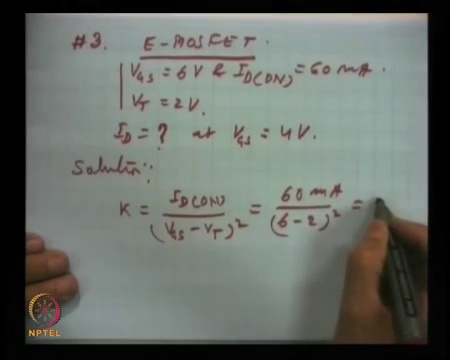 #3. E-MOSFET.
V_GS = 6 V & I_D(ON) = 60 mA.
V_T = 2 V.
I_D = ? at V_GS = 4 V.
Solution:
K = I_D(ON) / (V_GS - V_T)^2 = 60 mA / (6 - 2)^2 =
NPTEL